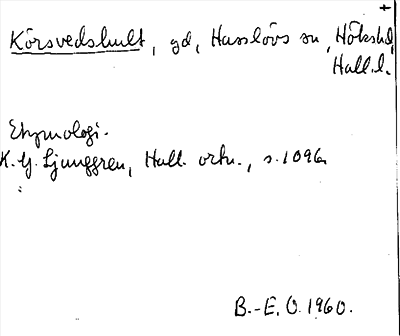 +
Körsvedshult, gd, Hasslövs sn, Hökshd,
Hall. l.
Etymologi.
K. G. Ljunggren, Hall. ortn., s. 109 f.
B.-E. O. 1960.